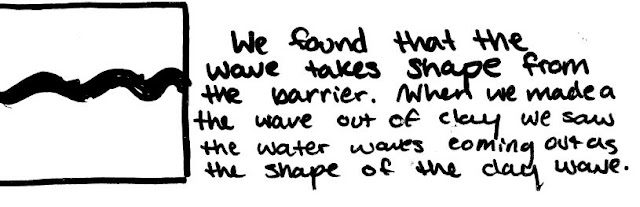 We found that the
wave takes shape from
the barrier. When we made a
the wave out of clay we saw
the water waves coming out as
the shape of the clay wave.